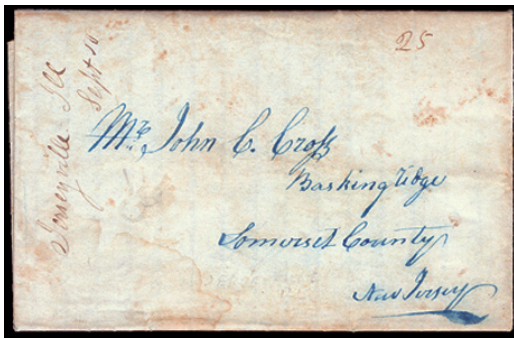 25
Jerseyville Ill
Sept 10
Mr. John C. Cross
Basking Ridge
Somerset County
New Jersey